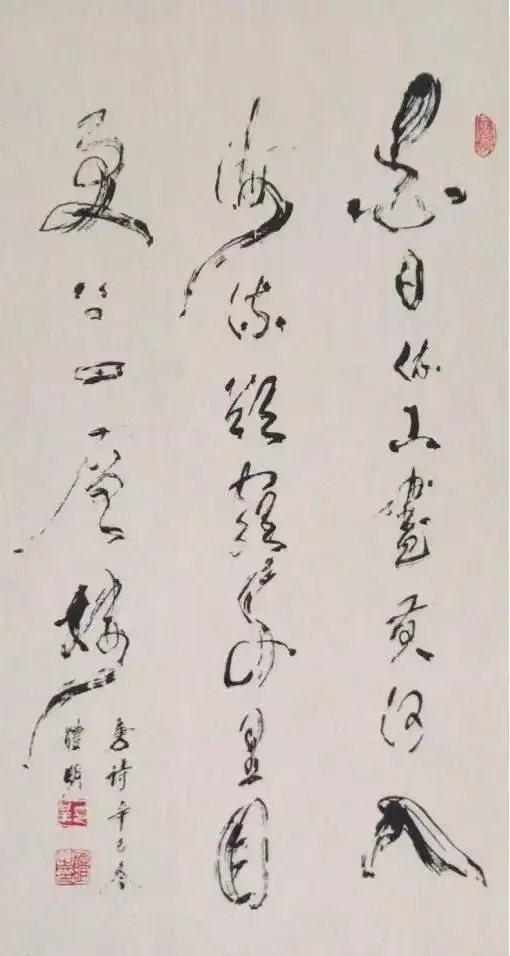 白日依山盡黃河入
海流欲窮千里目
更上一層樓
唐詩辛巳